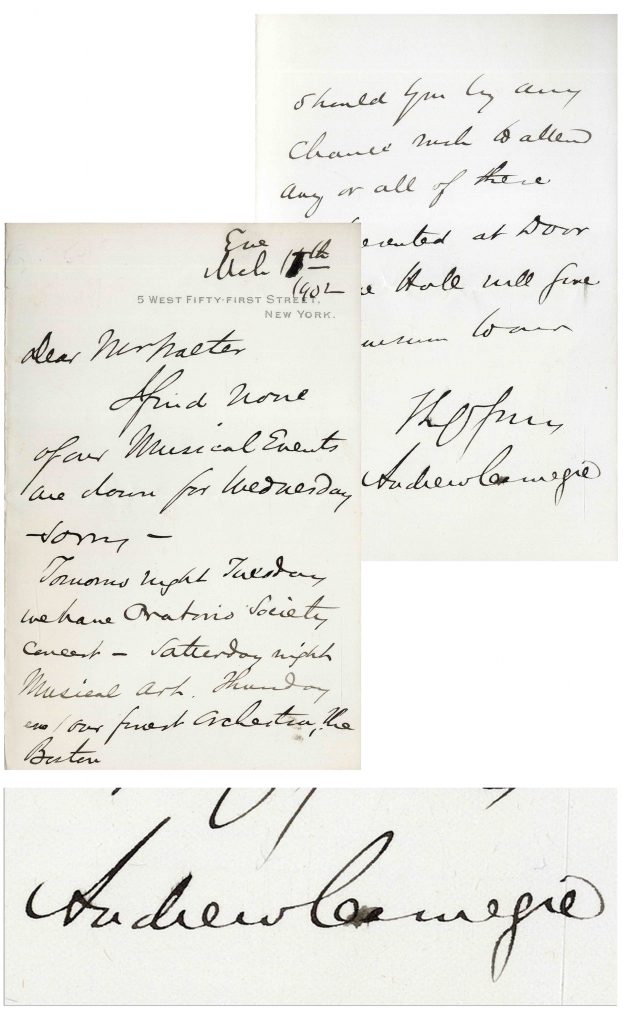 Eve
Mch 17th
1902
5 WEST FIFTY-FIRST STREET,
NEW YORK.
Dear Mr
I find none
of our Musical Events
are down for Wednesday
- sorry -
Tomorrow night Tuesday
we have Oratorio Society
Concert - Saturday night
Musical Art. Thursday
our finest Orchestra, the
Boston
Should you by any
chance wish to attend
any or all of these
esented at Door
Hall will give
to our
Andrew Carnegie
Andrew Carnegie